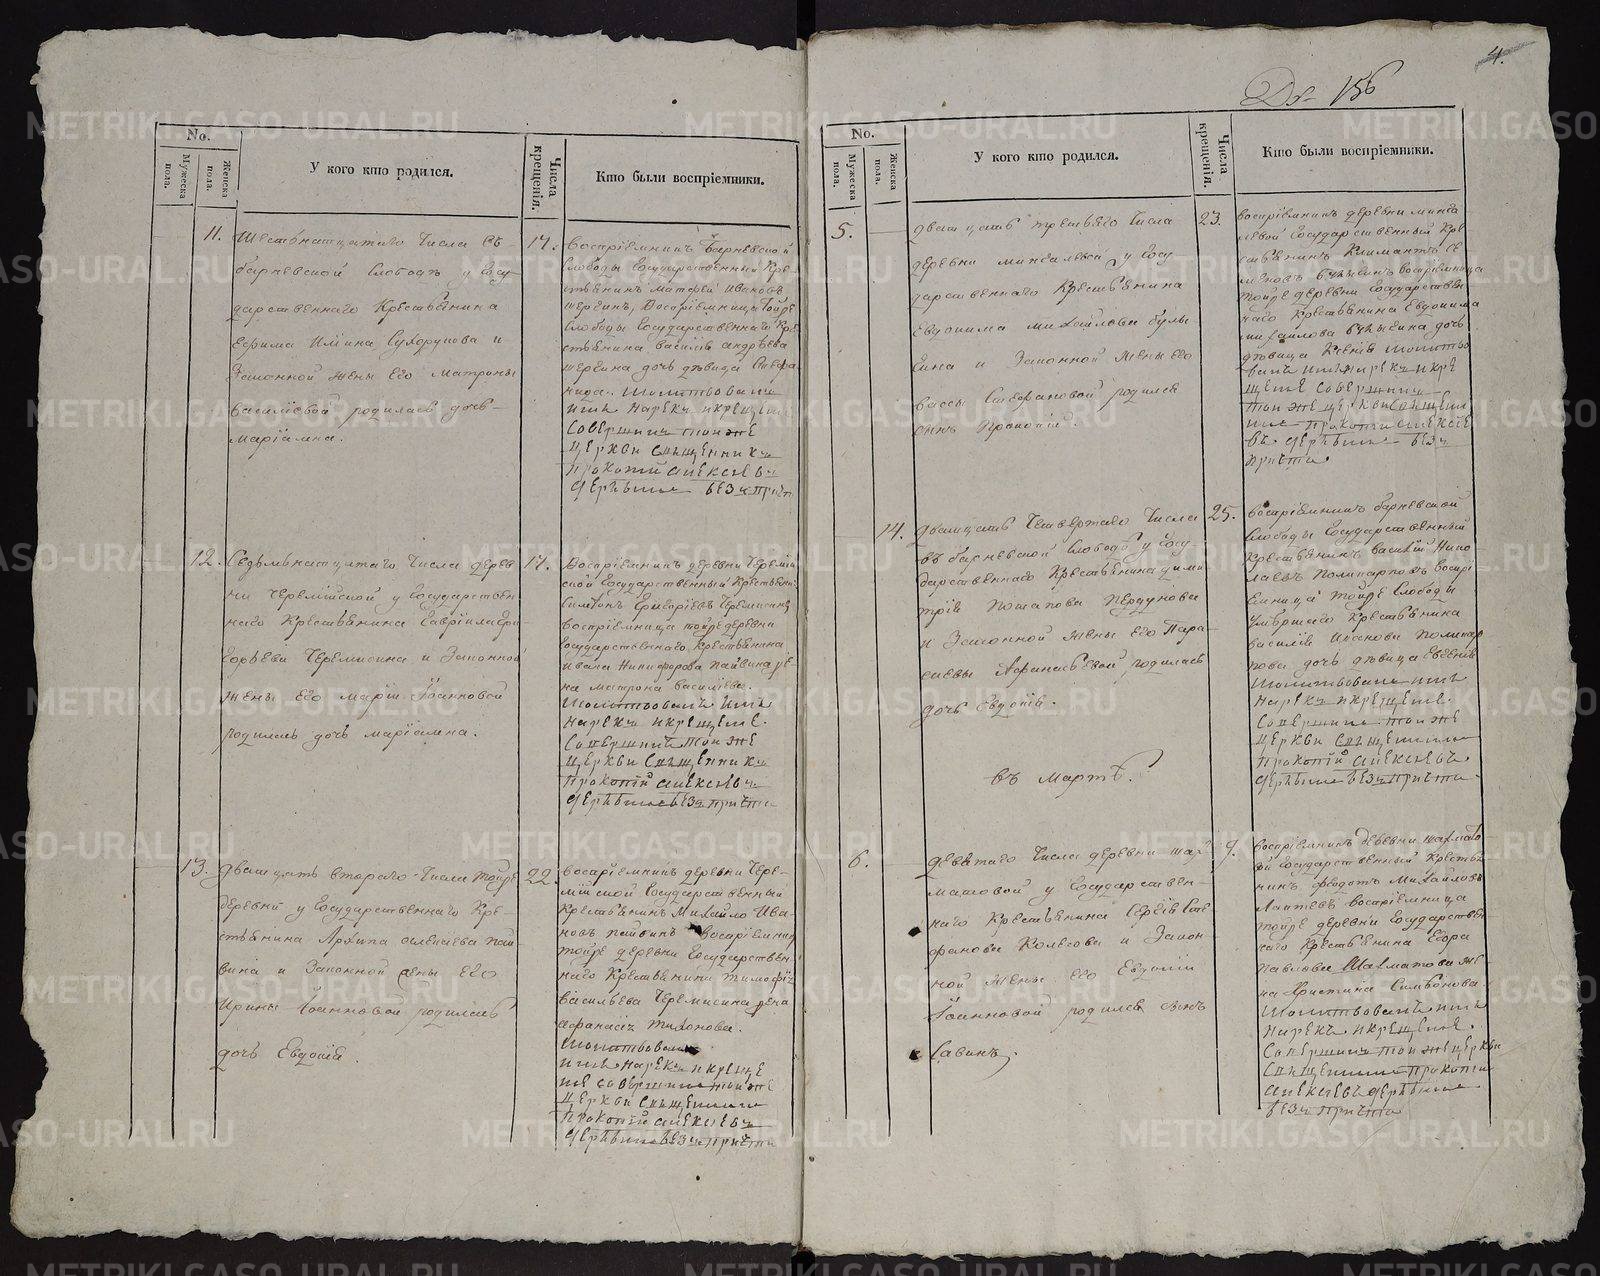 No.
Мужеска пола.
Женска пола.
У кого кто родился.
Числа крещенія.
Кто были воспріемники.
11.
Шестьнатцатаго Числа въ
барневской Слободѣ у Госу
дарственнаго Крестьянина
Ефима Сухорукова и
Законной жены его Матроны
Василіевой родилась дочь
Маріамна.
17.
Воспріемникъ Барневской
Слободы Государственный Кре
стьянинъ Матфей Ивановъ
Воспріемница тойже
Слободы Государственнаго Кре
стьянина Василія Андрѣева
дочь дѣвица
Молитвовалъ
имя нарекъ и крещение
Совершилъ тоя же
церкви Священникъ
Прокопий Алексеевъ
безъ причта
12.
Седьмьнатцатаго Числа дерев
ни Черемисской у Государствен
наго Крестьянина Гавріила Гри
горьева Черемисина и Законной
жены его Маріи Іоанновой
родилась дочь Маріамна.
17.
Воспріемникъ деревни Черемис
ской Государственный Крестьянинъ
Симеонъ Григоріевъ Черемисинъ
воспріемница тойже деревни
Государственнаго Крестьянина
Ивана Никифорова Пайвина же
на Матрона Василіева.
Молитвовалъ имя
нарекъ и крещение.
Совершилъ тоя же
церкви Священникъ
Прокопий Алексеевъ
безъ причта
13.
Двадцать втораго Числа тойже
деревни у Государственнаго Кре-
стьянина Архипа Алексѣева Пай
вина и Законной жены его
Ирины Іоанновой родилась
дочь Евдокія.
22.
воспріемникъ деревни Чере-
мисской Государственный
Крестьянинъ Михайло Ива-
новъ Пайвинъ воспріемница
тойже деревни Государствен
наго Крестьянина Тимофѣя
Васильева Черемисина жена
Афанасія Тихонова.
Молитвовалъ
имя нарекъ и креще
ние совершилъ тоя же
церкви Священникъ
Прокопий Алексеевъ
безъ причта
4.
156
No.
Мужеска пола.
Женска пола.
У кого кто родился.
Числа крещенія.
Кто были воспріемники.
5.
Двадцать третьяго Числа
деревни Мингалевой у Госу
дарственнаго Крестьянина
Евдокима Михайлова
и Законной жены его
Вассы Стефановой родился
сынъ Прокопій.
23.
воспріемникъ деревни Минга
левой Государственный Кре
стьянинъ
воспріемница
тойже деревни Государствен
наго Крестьянина Евдокима
Михайлова дочь
дѣвица Ксенія Молитво
валъ имя нарекъ и кре
щение совершилъ
тоя же церкви Священ
никъ Прокопий Алексее
въ безъ
причта.
14.
Двадцать Четвертаго Числа
въ барневской Слободѣ у Госу-
дарственнаго Крестьянина Дими
трія Потапова Пердунова
и Законной жены его Пара
скевы Афанасьевой родилась
дочь Евдокія.
25.
воспріемникъ барневской
Слободы Государственный
Крестьянинъ Василій Нико
лаевъ Поликарповъ воспрі
емница тойже Слободы
Умершаго Крестьянина
Василія Иванова Поликар
пова дочь дѣвица Евгенія
Молитвовалъ имя
нарекъ и крещение.
Совершилъ тоя же
церкви Священникъ
Прокопий Алексеевъ
безъ причта
въ Мартѣ.
6.
Девятаго Числа деревни Шах-
матовой у Государствен-
наго Крестьянина Сергія Сте
фанова Колѣсова и Закон
ной жены его Евдокіи
Іоанновой родился сынъ
Савинъ.
9.
воспріемникъ деревни Шахмато
вой Государственный Крестья
нинъ Федотъ Михайловъ
Лаптевъ воспріемница
тойже деревни Государствен
наго Крестьянина Егора
Павлова Шахматова же
на Христина Симеонова.
Молитвовалъ имя
нарекъ и крещение.
Совершилъ тоя же церкви
Священникъ Прокопий
Алексеевъ
безъ причта